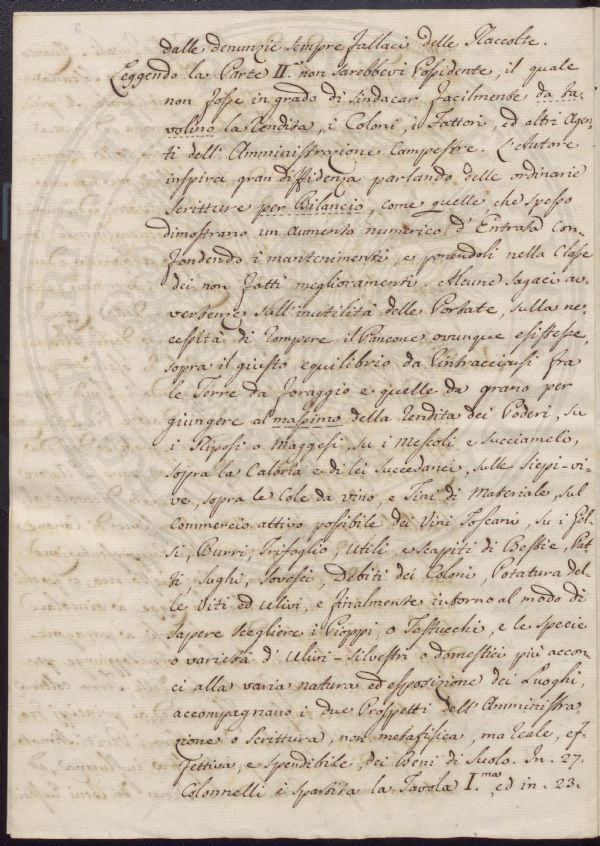 dalle denunzie sempre fallaci delle Raccolte.
Leggendo la Parte II.ª non sarebbevi Possidente, il quale
non fosse in grado di sindacar facilmente da ta-
volino la Rendita, i Coloni, i Fattori, ed altri Agen-
ti dell' Amministrazione Campestre. L'Autore
inspira gran diffidenza parlando delle ordinarie
scritture per Bilancio, come quelle, che spesso
dimostrano un aumento numerico d' Entrata con-
fondendo i mantenimenti, e ponendoli nella Classe
dei non fatti miglioramenti. Alcune sagaci av-
vertenze sull'inutilità delle Portate, sulla ne-
cessità di rompere il Pancone ovunque esistesse,
sopra il giusto equilibrio da rintracciarsi fra
le Terre da foraggio e quelle da grano per
giungere al massimo della rendita dei Poderi, su
i Riposi o Maggesi, su i Mescoli e succiameli,
sopra la Caloria e di lei succedanei, sulle siepi-vi-
ve, sopra le Cole da vino, e Tini di Materiale, sul
Commercio attivo possibile dei Vini Toscani, su i Gel-
si, Burri, Trifoglio, Utili e scapiti di Bestie, Pat-
ti, Sughi, Sovesci, Debiti dei Coloni, Potatura del-
le Viti ed Ulivi, e finalmente intorno al modo di
sapere scegliere i Pioppi, o Testucchi, e le specie
o varietà d' Ulivi-silvestri o domestici più accon-
ci alla varia natura ed esposizione dei Luoghi,
accompagnano i due Prospetti dell' Amministra
zione o Scrittura, non metafisica, ma reale, ef-
fettiva, e spendibile, dei Beni di Suolo. In. 27.
Colonnelli è spartita la Tavola I.ma, ed in. 23.